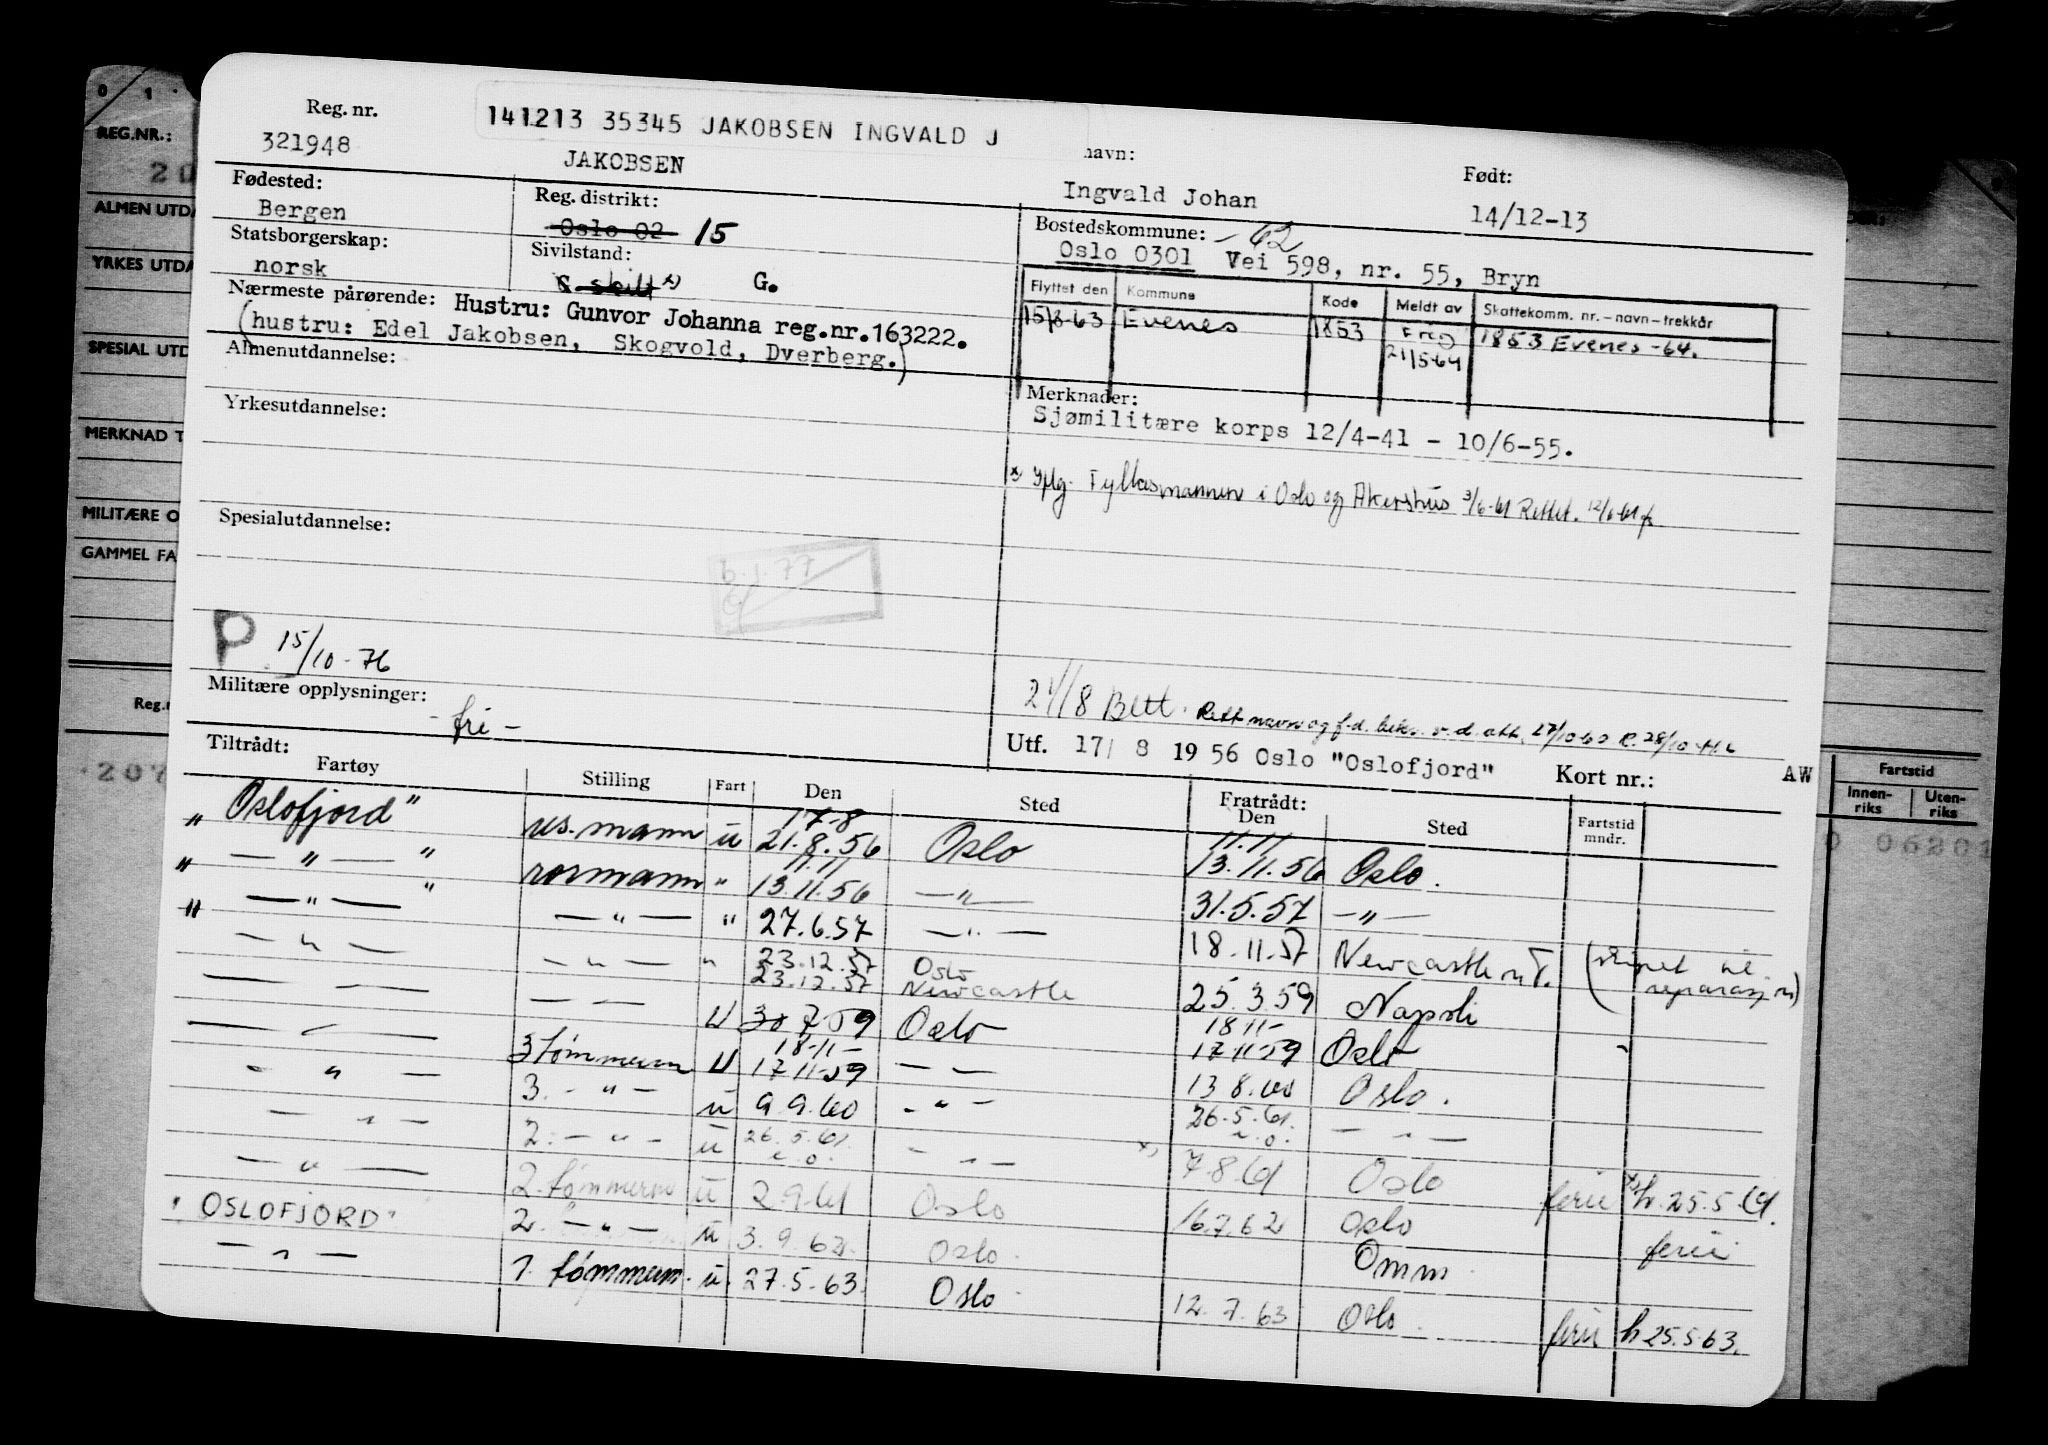 0 1
REG.NR.:
20
ALMEN UTDA
YRKES UTDA
SPESIAL UTD
MERKNAD T
MILITÆRE O
GAMMEL FA
Reg.n
207
Reg. nr.
321948
141213 35345 JAKOBSEN INGVALD J
JAKOBSEN
navn:
Ingvald Johan
Født:
14/12-13
Fødested:
Bergen
Reg. distrikt:
Oslo 02 15
Bostedskommune: -62
Oslo 0301 Vei 598, nr. 55, Bryn
Statsborgerskap:
norsk
Sivilstand:
G. skilt x) G.
Flyttet den Kommune Kode Meldt av Skattekomm. nr.-navn-trekkår
15/8-63 Evenes 1853 21/5-64 1853 Evenes -64.
Nærmeste pårørende: Hustru: Gunvor Johanna reg.nr.163222.
(hustru: Edel Jakobsen, Skogvold, Dverberg.)
Almenutdannelse:
Merknader:
Sjømilitære korps 12/4-41 - 10/6-55.
Yrkesutdannelse:
x) Iflg. Fylkesmannen i Oslo og Akershus 3/6-61 Rettet. 12/6-61
Spesialutdannelse:
6.1.77
P 15/10-76
Militære opplysninger:
- fri -
21/8 Bett. Rett navn og f.d. 27/10-60 R. 28/10
Utf. 17/ 8 1956 Oslo "Oslofjord" Kort nr.: AW
Tiltrådt:
Fartøy Stilling Fart Den Sted Fratrådt: Den Sted Fartstid mndr.
Fartstid
Innen-riks Uten-riks
0 06201
"Oslofjord" us. mann u 17-8 21.8.56 Oslo 11.11 13.11.56 Oslo.
" — " — " rormann " 11.11 13.11.56 — " — 31.5.57 — " —
" — " — " — " — " 27.6.57 — " — 18.11.57 Newcastle n T. (skipet til reparasjon)
— " — — " — " 23.12.57 23.12.57 Oslo Newcastle 25.3.59 Napoli
— — — — U 30 7-59 Oslo 18 11- 17-11-59 Oslo
— " — 3 tømmerm U 18-11- 17 11-59 — — 13 8.60 Oslo.
— " — 3. — " — u 9 9.60 — " — 26.5.61. — " —
— " — 2. — " — u 26.5.61. — " — x) 7-8-61 Oslo ferie x) h. 25.5.61.
— " — 2. tømmerm u 2 9-61 Oslo 16.7.62 Oslo ferie
"OSLOFJORD" 2. — " — u 3.9.62. Oslo. Omm
— " — 1. tømmerm. u. 27.5-63. Oslo 12.7.63 Oslo. ferie h 25.5.63.